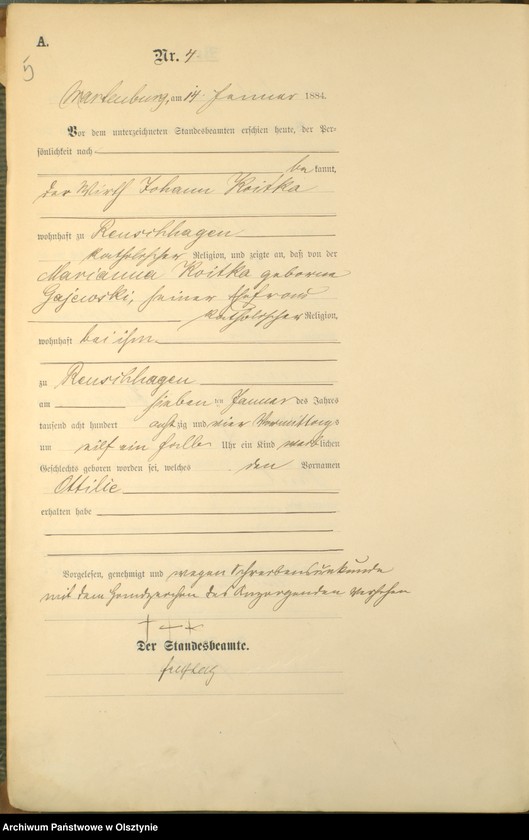 A.
5
Nr. 4.
Wartenburg, am 14. Januar 1884.
Vor dem unterzeichneten Standesbeamten erschien heute, der Per-
sönlichkeit nach
be kannt,
der Wirth Johann Koitka
wohnhaft zu Reuschhagen
katholischer Religion, und zeigte an, daß von der
Marianna Koitka geborene
Gajewski, seiner Ehefrau
katholischer Religion,
wohnhaft bei ihm
zu Reuschhagen
am sieben ten Januar des Jahres
tausend acht hundert achtzig und vier Vormittags
um eilf ein halb Uhr ein Kind weiblichen
Geschlechts geboren worden sei, welches den Vornamen
Ottilie
erhalten habe
Vorgelesen, genehmigt und wegen Schreibensunkunde
mit dem Handzeichen des Anzeigenden versehen
+ + +
Der Standesbeamte.
Archiwum Państwowe w Olsztynie